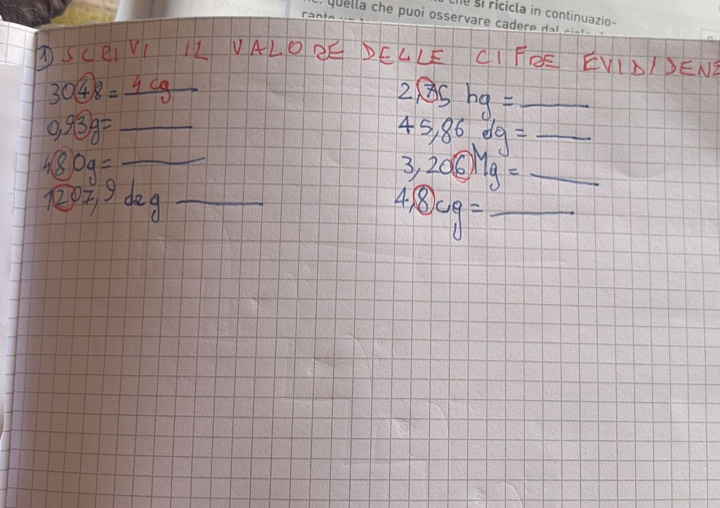 quella che puoi osservare cadere dal
che si ricicla in continuazio-
1) SCRIVI IL VALORE DELLE CIFRE EVIDIDENZ
3048 = 4 cg
2,75 hg = ____
0,93g = ____
45,86 dg = ____
480g = ____
3,206 Mg = ____
1207,9 dag ____
4,8 cg = ____